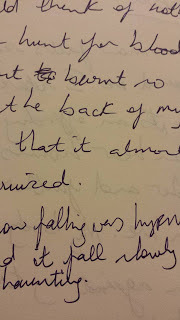 ld think of noth
hunt for blood
burnt so
t the back of my
that it almos
ruized.
ow falling was hypn
d it fall slowly
haunting.